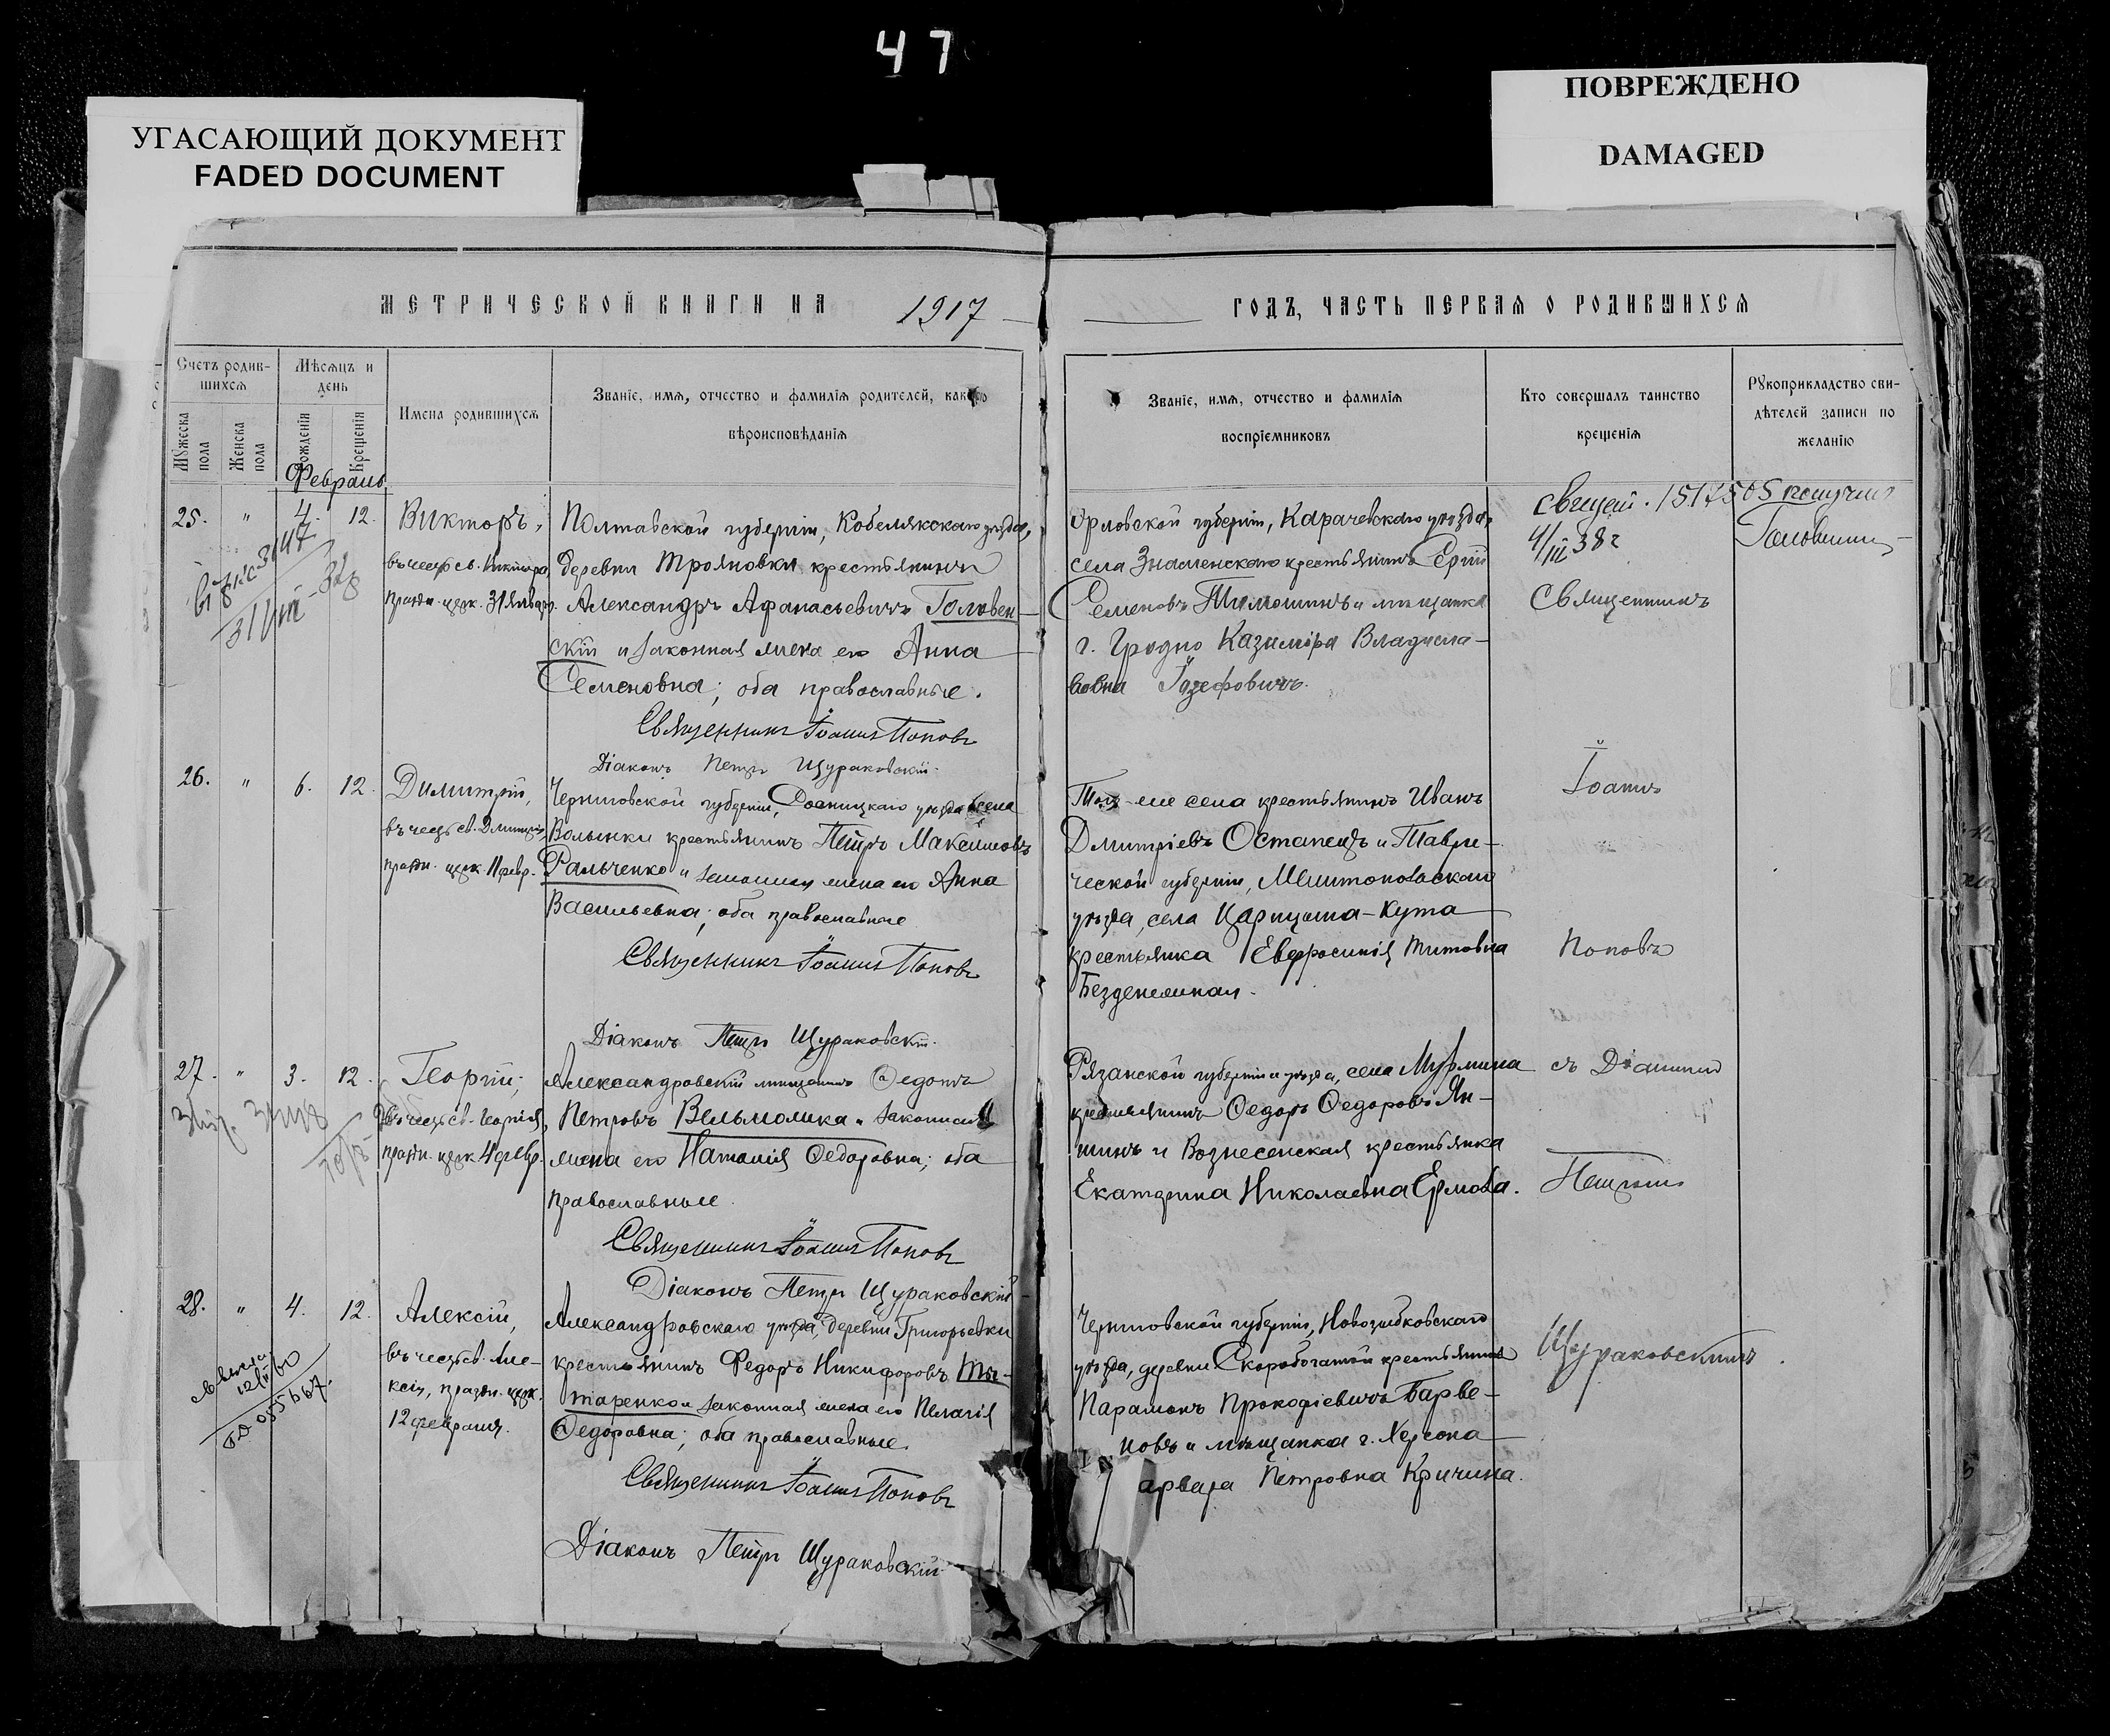 47
УГАСАЮЩИЙ ДОКУМЕНТ
FADED DOCUMENT
ПОВРЕЖДЕНО
DAMAGED
МЕТРИЧЕСКОЙ КНИГИ НА 1917
ГОДЪ, ЧАСТЬ ПЕРВАЯ О РОДИВШИХСЯ
Счетъ родив-
шихся
Мѣсяцъ и
день
Мужеска
пола
Женска
пола
Рожденія
Крещенія
Имена родившихся
Званіе, имя, отчество и фамилія родителей, какого
вѣроисповѣданія
Званіе, имя, отчество и фамилія
воспріемниковъ
Кто совершалъ таинство
крещенія
Рукоприкладство сви-
дѣтелей записи по
желанію
Февраль
25. " 4. 12.
Викторъ,
въ честь св. Виктора,
праздн. церк. 31 января.
Полтавской губерніи, Кобелякскаго уѣзда,
деревни Трояновки крестьянинъ
Александръ Афанасьевичъ Головен-
скій и законная жена его Анна
Семеновна; оба православные.
Священникъ Іоаннъ Поповъ
Діаконъ Петръ Щураковскій.
Орловской губерніи, Карачевскаго уѣзда,
села Знаменскаго крестьянинъ Сергій
Семеновъ Тимошинъ и мѣщанка
г. Гродно Казиміра Владисла-
вовна Іозефовичъ.
4/III 38 г
Священникъ
26. " 6. 12.
Димитрій,
въ честь св. Димитрія,
праздн. церк. 11 февр.
Черниговской губерніи, Сосницкаго уѣзда села
Волынки крестьянинъ Петръ Максимовъ
Фальченко и законная жена его Анна
Васильевна; оба православные
Священникъ Іоаннъ Поповъ
Діаконъ Петръ Щураковскій.
Того-же села крестьянинъ Иванъ
Дмитріевъ Остапецъ и Таври-
ческой губерніи, Мелитопольскаго
уѣзда, села Царицына-Кута
крестьянка Евфросинія Титовна
Безденежная.
Іоаннъ
Поповъ
27. " 3. 12.
Георгій,
въ честь св. Георгія,
праздн. церк. 4 февр.
Александровскій мѣщанинъ Ѳедотъ
Петровъ Вельможка и законная
жена его Наталія Ѳедоровна; оба
православные.
Священникъ Іоаннъ Поповъ
Діаконъ Петръ Щураковскій
Рязанской губерніи и уѣзда, села Мурмина
крестьянинъ Ѳедоръ Ѳедоровъ Ян-
шинъ и Вознесенская крестьянка
Екатерина Николаевна Ермова.
съ Діакономъ
Петромъ
28. " 4. 12.
Алексій,
въ честь св. Але-
ксія, праздн. церк.
12 февраля.
Александровскаго уѣзда, деревни Григорьевки
крестьянинъ Федоръ Никифоровъ Ты-
таренко и законная жена его Пелагія
Ѳедоровна; оба православные.
Священникъ Іоаннъ Поповъ
Діаконъ Петръ Щураковскій
Черниговской губерніи, Новозыбковскаго
уѣзда, деревни Скоробогатой крестьянинъ
Парамонъ Прокофіевичъ Барве-
новъ и мѣщанка г. Херсона
арвара Петровна Кричина.
Щураковскимъ.